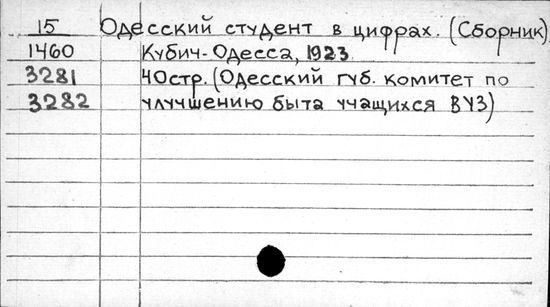 15 Одесский студент в цифрах. (Сборник)
1460 Кубич-Одесса, 1923
3281 40стр. (Одесский губ. комитет по
3282 улучшению быта учащихся ВУЗ)